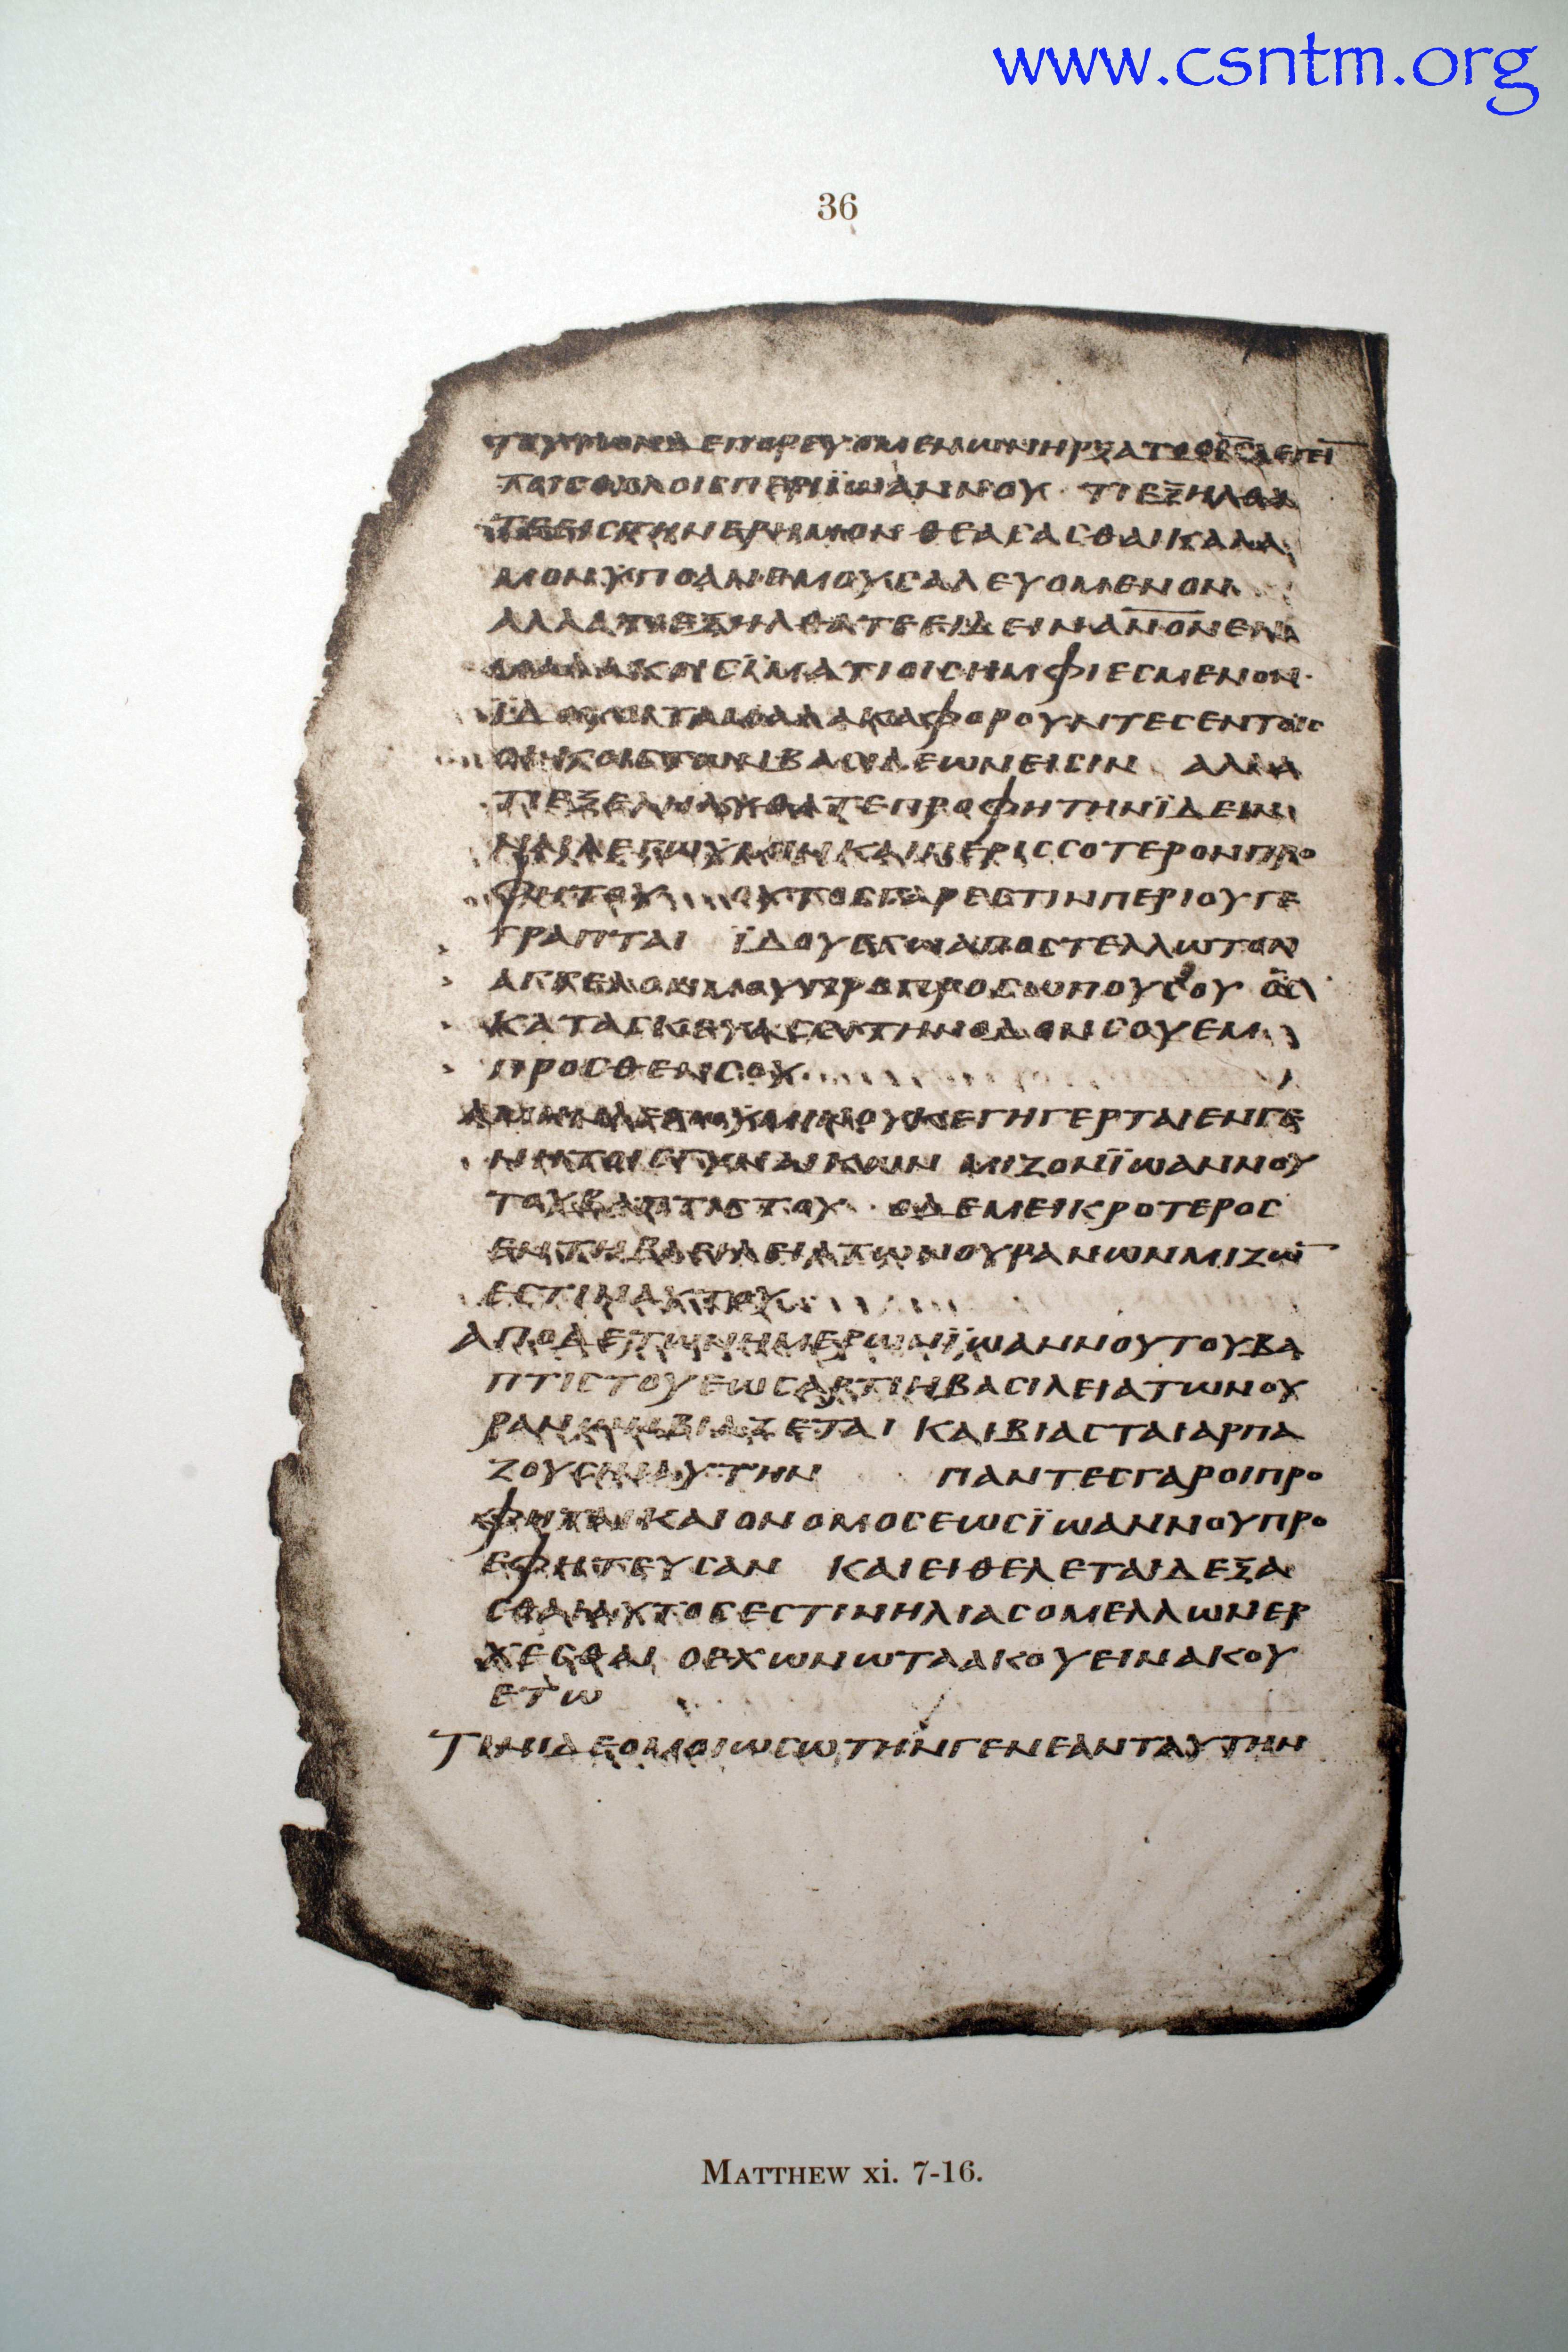 www.csntm.org
36
ΤΟΥΤΩΝΔΕΠΟΡΕΥΟΜΕΝΩΝΗΡΞΑΤΟΟΙ̅C̅ΛΕΓΕΙ
ΤΟΙCΟΧΛΟΙCΠΕΡΙΪΩΑΝΝΟΥ ΤΙΕΞΗΛΘΑ
ΤΕΕΙCΤΗΝΕΡΗΜΟΝΘΕΑCΑCΘΑΙΚΑΛΑ
ΜΟΝΥΠΟΑΝΕΜΟΥCΑΛΕΥΟΜΕΝΟΝ
ΑΛΛΑΤΙΕΞΗΛΘΑΤΕΕΙΔΕΙΝΑ̅Ν̅Ο̅Ν̅ΕΝ
ΜΑΛΑΚΟΙCΪΜΑΤΙΟΙCΗΜΦΙΕCΜΕΝΟΝ·
ΪΔΟΥΟΙΤΑΜΑΛΑΚΑΦΟΡΟΥΝΤΕCΕΝΤΟΙC
ΟΙΚΟΙCΤΩΝΒΑCΙΛΕΩΝΕΙCΙΝ ΑΛΛΑ
ΠΡΟΦΗΤΗΝΪΔΕΙΝ
ΝΑΙΛΕΓΩΥΜΙΝΚΑΙΠΕΡΙCCΟΤΕΡΟΝΠΡΟ
ΦΗΤΟΥ ΟΥΤΟCΓΑΡΕCΤΙΝΠΕΡΙΟΥΓΕ
ΓΡΑΠΤΑΙ ΪΔΟΥΕΓΩΑΠΟCΤΕΛΛΩΤΟΝ
ΑΓΓΕΛΟΝΜΟΥΠΡΟΠΡΟCΩΠΟΥCΟΥ ΟC
ΚΑΤΑCΚΕΥΑCΕΙΤΗΝΟΔΟΝCΟΥΕΜ
ΠΡΟCΘΕΝCΟΥ
ΑΜΗΝΛΕΓΩΥΜΙΝΟΥΚΕΓΗΓΕΡΤΑΙΕΝΓΕ
ΝΗΤΟΙCΓΥΝΑΙΚΩΝ ΜΙΖΩΝΪΩΑΝΝΟΥ
ΤΟΥΒΑΠΤΙCΤΟΥ ΟΔΕΜΕΙΚΡΟΤΕΡΟC
ΕΝΤΗΒΑCΙΛΕΙΑΤΩΝΟΥΡΑΝΩΝΜΙΖΩ̅
ΕCΤΙΝΑΥΤΟΥ
ΑΠΟΔΕΤΩΝΗΜΕΡΩΝΪΩΑΝΝΟΥΤΟΥΒΑ
ΠΤΙCΤΟΥΕΩCΑΡΤΙΗΒΑCΙΛΕΙΑΤΩΝΟΥ
ΡΑΝΩΝΒΙΑΖΕΤΑΙ ΚΑΙΒΙΑCΤΑΙΑΡΠΑ
ΖΟΥCΙΝΑΥΤΗΝ ΠΑΝΤΕCΓΑΡΟΙΠΡΟ
ΦΗΤΑΙΚΑΙΟΝΟΜΟCΕΩCΪΩΑΝΝΟΥΠΡΟ
ΕΦΗΤΕΥCΑΝ ΚΑΙΕΙΘΕΛΕΤΑΙΔΕΞΑ
CΘΑΙΑΥΤΟCΕCΤΙΝΗΛΙΑCΟΜΕΛΛΩΝΕΡ
ΧΕCΘΑΙ ΟΕΧΩΝΩΤΑΑΚΟΥΕΙΝΑΚΟΥ
ΕΤΩ
ΤΙΝΙΔΕΟΜΟΙΩCΩΤΗΝΓΕΝΕΑΝΤΑΥΤΗΝ
MATTHEW xi. 7-16.